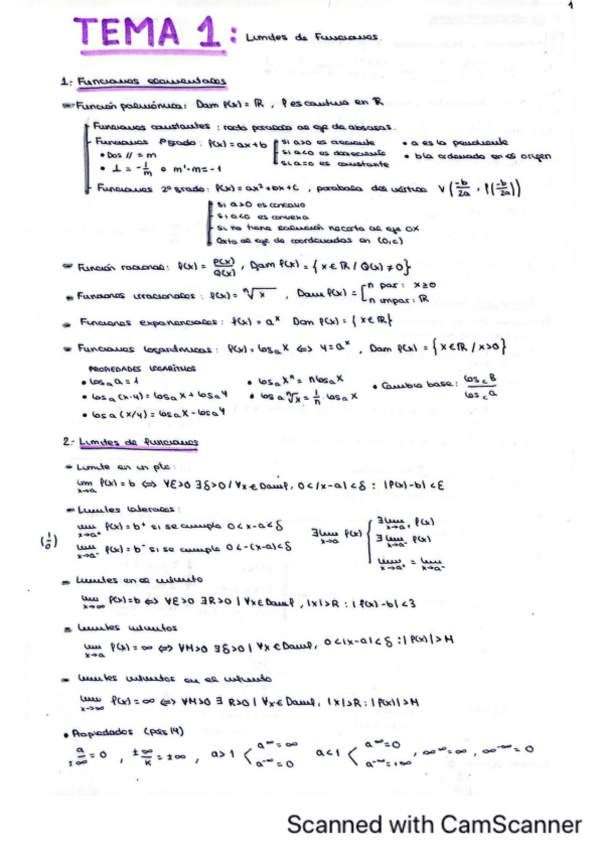 1
TEMA 1: Límites de Funciones.
1: Funciones elementales
Función polinómica: Dom f(x) = ℝ, f es continua en ℝ
Funciones constantes: recta paralela al eje de abscisas.
Funciones 1º grado: f(x) = ax + b
si a>0 es creciente
si a<0 es decreciente
si a=0 es constante
• a es la pendiente
• b la ordenada en el origen
• Dos // = m
• ⊥ = -1/m o m'·m = -1
Funciones 2º grado: f(x) = ax² + bx + c, parábola des vértice V(-b/2a, f(-b/2a))
si a>0 es concava
si a<0 es convexa
si no tiene solución no corta al eje OX
Corta al eje de coordenadas en (0,c)
Función racional: f(x) = P(x)/Q(x), Dom f(x) = {x∈ℝ / Q(x) ≠ 0}
Funciones irracionales: f(x) = ⁿ√x, Dom f(x) = [n par: x≥0
n impar: ℝ
Funciones exponenciales: f(x) = aˣ Dom f(x) = {x∈ℝ}
Funciones logarítmicas: f(x) = log_a x ⇔ y = aˣ, Dom f(x) = {x∈ℝ / x>0}
PROPIEDADES LOGARITMOS
• log_a a = 1 • log_a xⁿ = n log_a x • Cambio base: log_c B / log_c a
• log_a (x·y) = log_a x + log_a y • log_a ⁿ√x = 1/n · log_a x
• log_a (x/y) = log_a x - log_a y
2.- Límites de funciones
Límite en un pto:
lim x→a f(x) = b ⇔ ∀ε>0 ∃δ>0 / ∀x∈Domf, 0<|x-a|<δ : |f(x)-b|<ε
Límites laterales:
lim x→a⁺ f(x) = b⁺ si se cumple 0<x-a<δ
(1/0) lim x→a⁻ f(x) = b⁻ si se cumple 0<-(x-a)<δ
∃ lim x→a f(x) { ∃ lim x→a⁺ f(x)
∃ lim x→a⁻ f(x)
lim x→a⁺ = lim x→a⁻
Límites en el infinito
lim x→∞ f(x) = b ⇔ ∀ε>0 ∃R>0 | ∀x∈Domf, |x|>R : |f(x)-b|<3
Límites infinitos
lim x→a f(x) = ∞ ⇔ ∀M>0 ∃δ>0 | ∀x∈Domf, 0<|x-a|<δ : |f(x)|>M
Límites infinitos en el infinito
lim x→∞ f(x) = ∞ ⇔ ∀M>0 ∃R>0 | ∀x∈Domf, |x|>R : |f(x)|>M
• Propiedades (pág 14)
a/±∞ = 0, ±∞/K = ±∞, a>1 < a^∞ = ∞ a^-∞ = 0 a<1 < a^∞ = 0 a^-∞ = +∞, ∞^∞ = ∞, ∞^-∞ = 0
Scanned with CamScanner